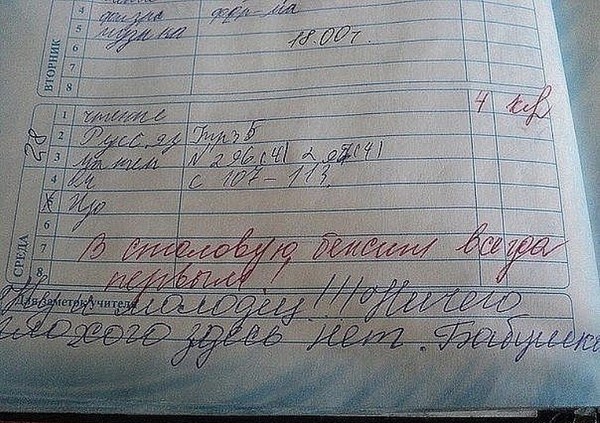 4 физра фор-ма
5 музыка
6 18.00 г.
7
8
ВТОРНИК
28
СРЕДА
1 чтение 4
2 Русс. яз Упр 5
3 N 296 (4)
4 с 107-113.
5
6
7 В столовую бежит всегда
8 первым
Для заметок учителя
Ну и молодец!!! Ничего
плохого здесь нет. Бабушка